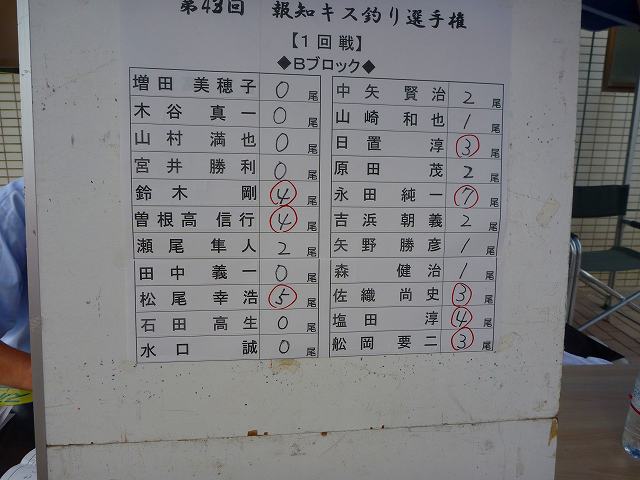 第43回 報知キス釣り選手権
【1回戦】
◆Bブロック◆
増田 美穂子 0 尾
木谷 真一 0 尾
山村 満也 0 尾
宮井 勝利 0 尾
鈴木 剛 4 尾
曽根高 信行 4 尾
瀬尾 隼人 2 尾
田中 義一 0 尾
松尾 幸浩 5 尾
石田 高生 0 尾
水口 誠 0 尾
中矢 賢治 2 尾
山崎 和也 1 尾
日置 淳 3 尾
原田 茂 2 尾
永田 純一 7 尾
吉浜 朝義 2 尾
矢野 勝彦 1 尾
森 健治 1 尾
佐織 尚史 3 尾
塩田 淳 4 尾
舩岡 要二 3 尾